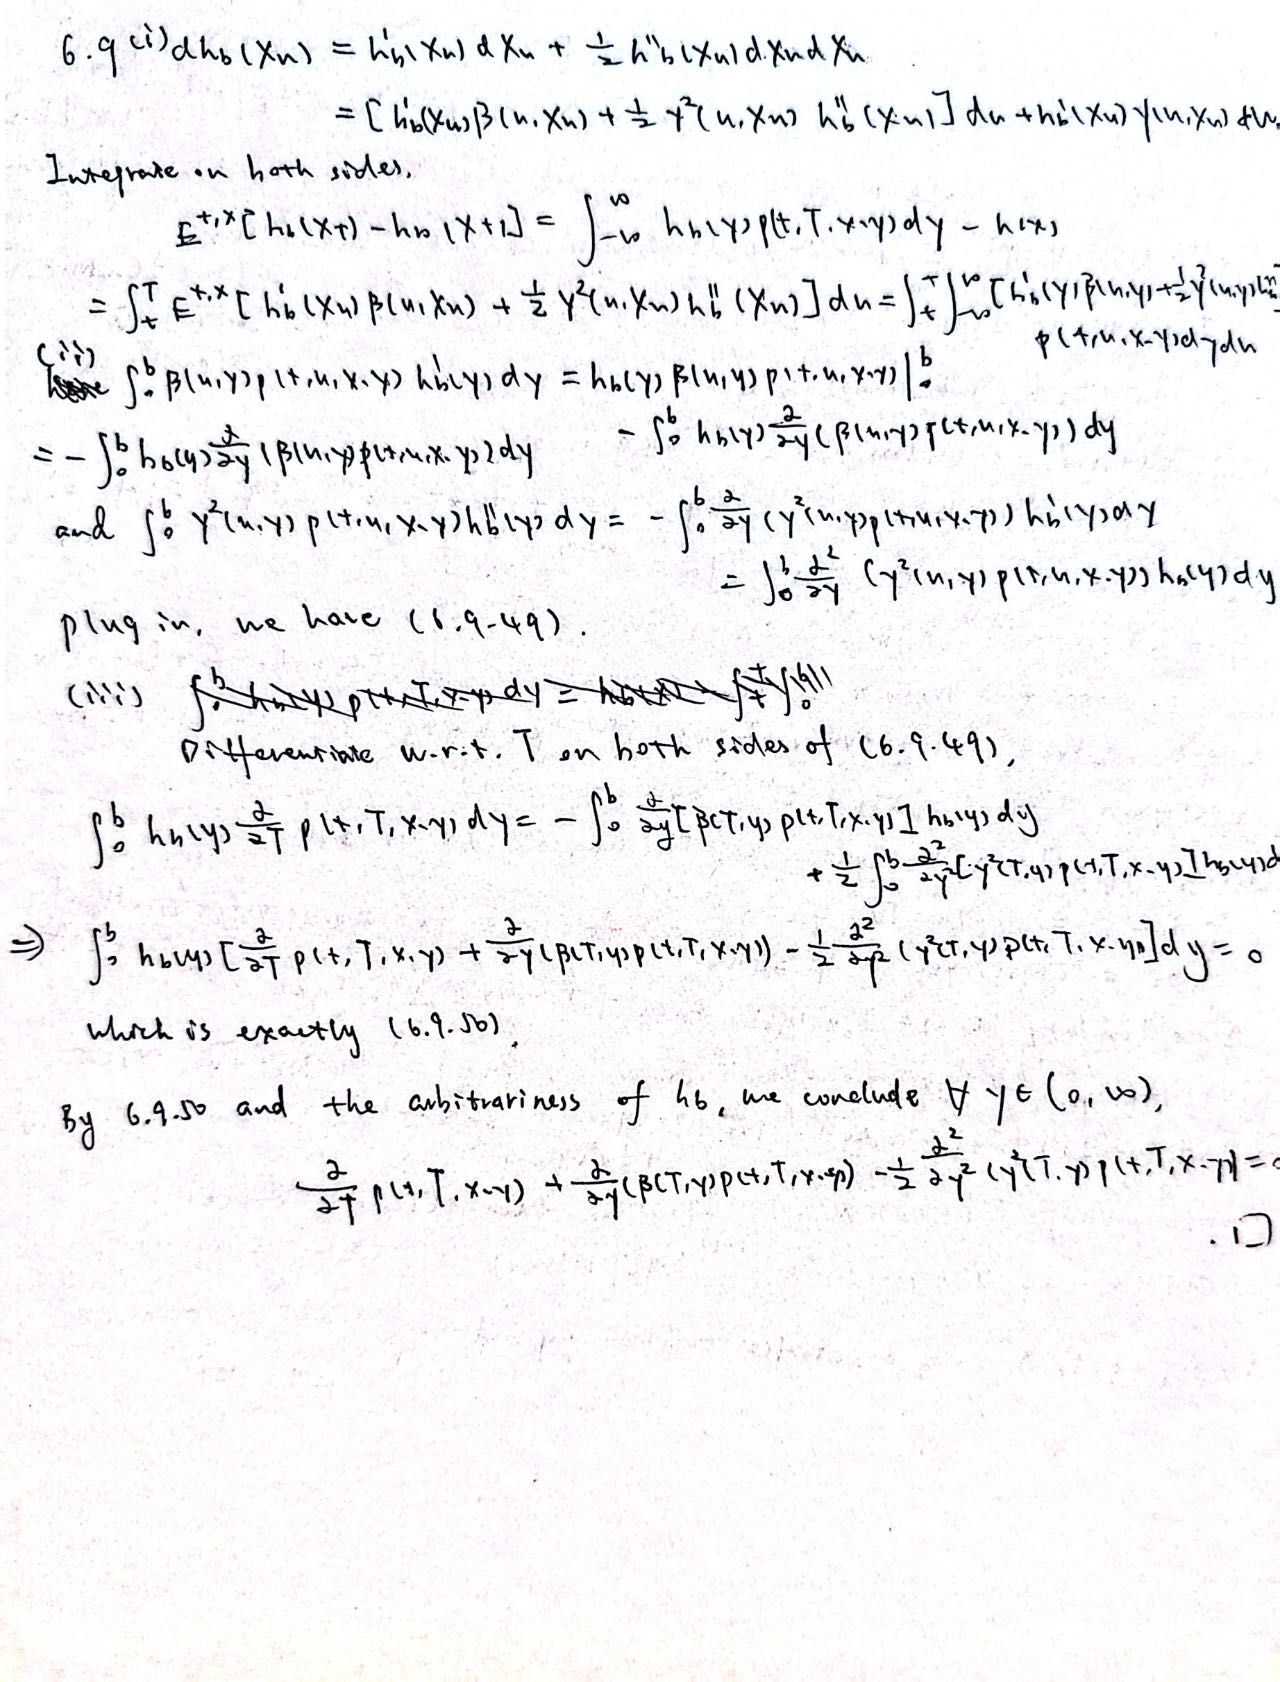 6.9 (i) dh_b(X_u) = h'_b(X_u) dX_u + 1/2 h''_b(X_u) dX_u dX_u
= [h'_b(X_u)β(u,X_u) + 1/2 γ²(u,X_u) h''_b(X_u)] du + h'_b(X_u) γ(u,X_u) dW
Integrate on both sides,
E^{t,x}[h_b(X_T) - h_b(X_t)] = ∫_{-∞}^{∞} h_b(y) p(t,T,x,y) dy - h(x)
= ∫_t^T E^{t,x}[h'_b(X_u) β(u,X_u) + 1/2 γ²(u,X_u) h''_b(X_u)] du = ∫_t^T ∫_{-∞}^{∞} [h'_b(y)β(u,y) + 1/2 γ²(u,y) h''_b]
p(t,u,x,y)dydu
(ii)
∫_0^b β(u,y) p(t,u,x,y) h'_b(y) dy = h_b(y) β(u,y) p(t,u,x,y)|_0^b
- ∫_0^b h_b(y) ∂/∂y (β(u,y) p(t,u,x,y)) dy
= - ∫_0^b h_b(y) ∂/∂y (β(u,y) p(t,u,x,y)) dy
and ∫_0^b γ²(u,y) p(t,u,x,y) h''_b(y) dy = - ∫_0^b ∂/∂y (γ²(u,y) p(t,u,x,y)) h'_b(y) dy
= ∫_0^b ∂²/∂y (γ²(u,y) p(t,u,x,y)) h_b(y) dy
plug in, we have (6.9.49).
(iii)
Differentiate w.r.t. T on both sides of (6.9.49),
∫_0^b h_b(y) ∂/∂T p(t,T,x,y) dy = - ∫_0^b ∂/∂y [β(T,y) p(t,T,x,y)] h_b(y) dy
+ 1/2 ∫_0^b ∂²/∂y² [γ²(T,y) p(t,T,x,y)] h_b(y) d
⇒ ∫_0^b h_b(y) [∂/∂T p(t,T,x,y) + ∂/∂y (β(T,y) p(t,T,x,y)) - 1/2 ∂²/∂y² (γ²(T,y) p(t,T,x,y))] dy = 0
which is exactly (6.9.50).
By 6.9.50 and the arbitrariness of h_b, we conclude ∀ y ∈ (0, ∞),
∂/∂T p(t,T,x,y) + ∂/∂y (β(T,y) p(t,T,x,y)) - 1/2 ∂²/∂y² (γ²(T,y) p(t,T,x,y)) = 0
. □